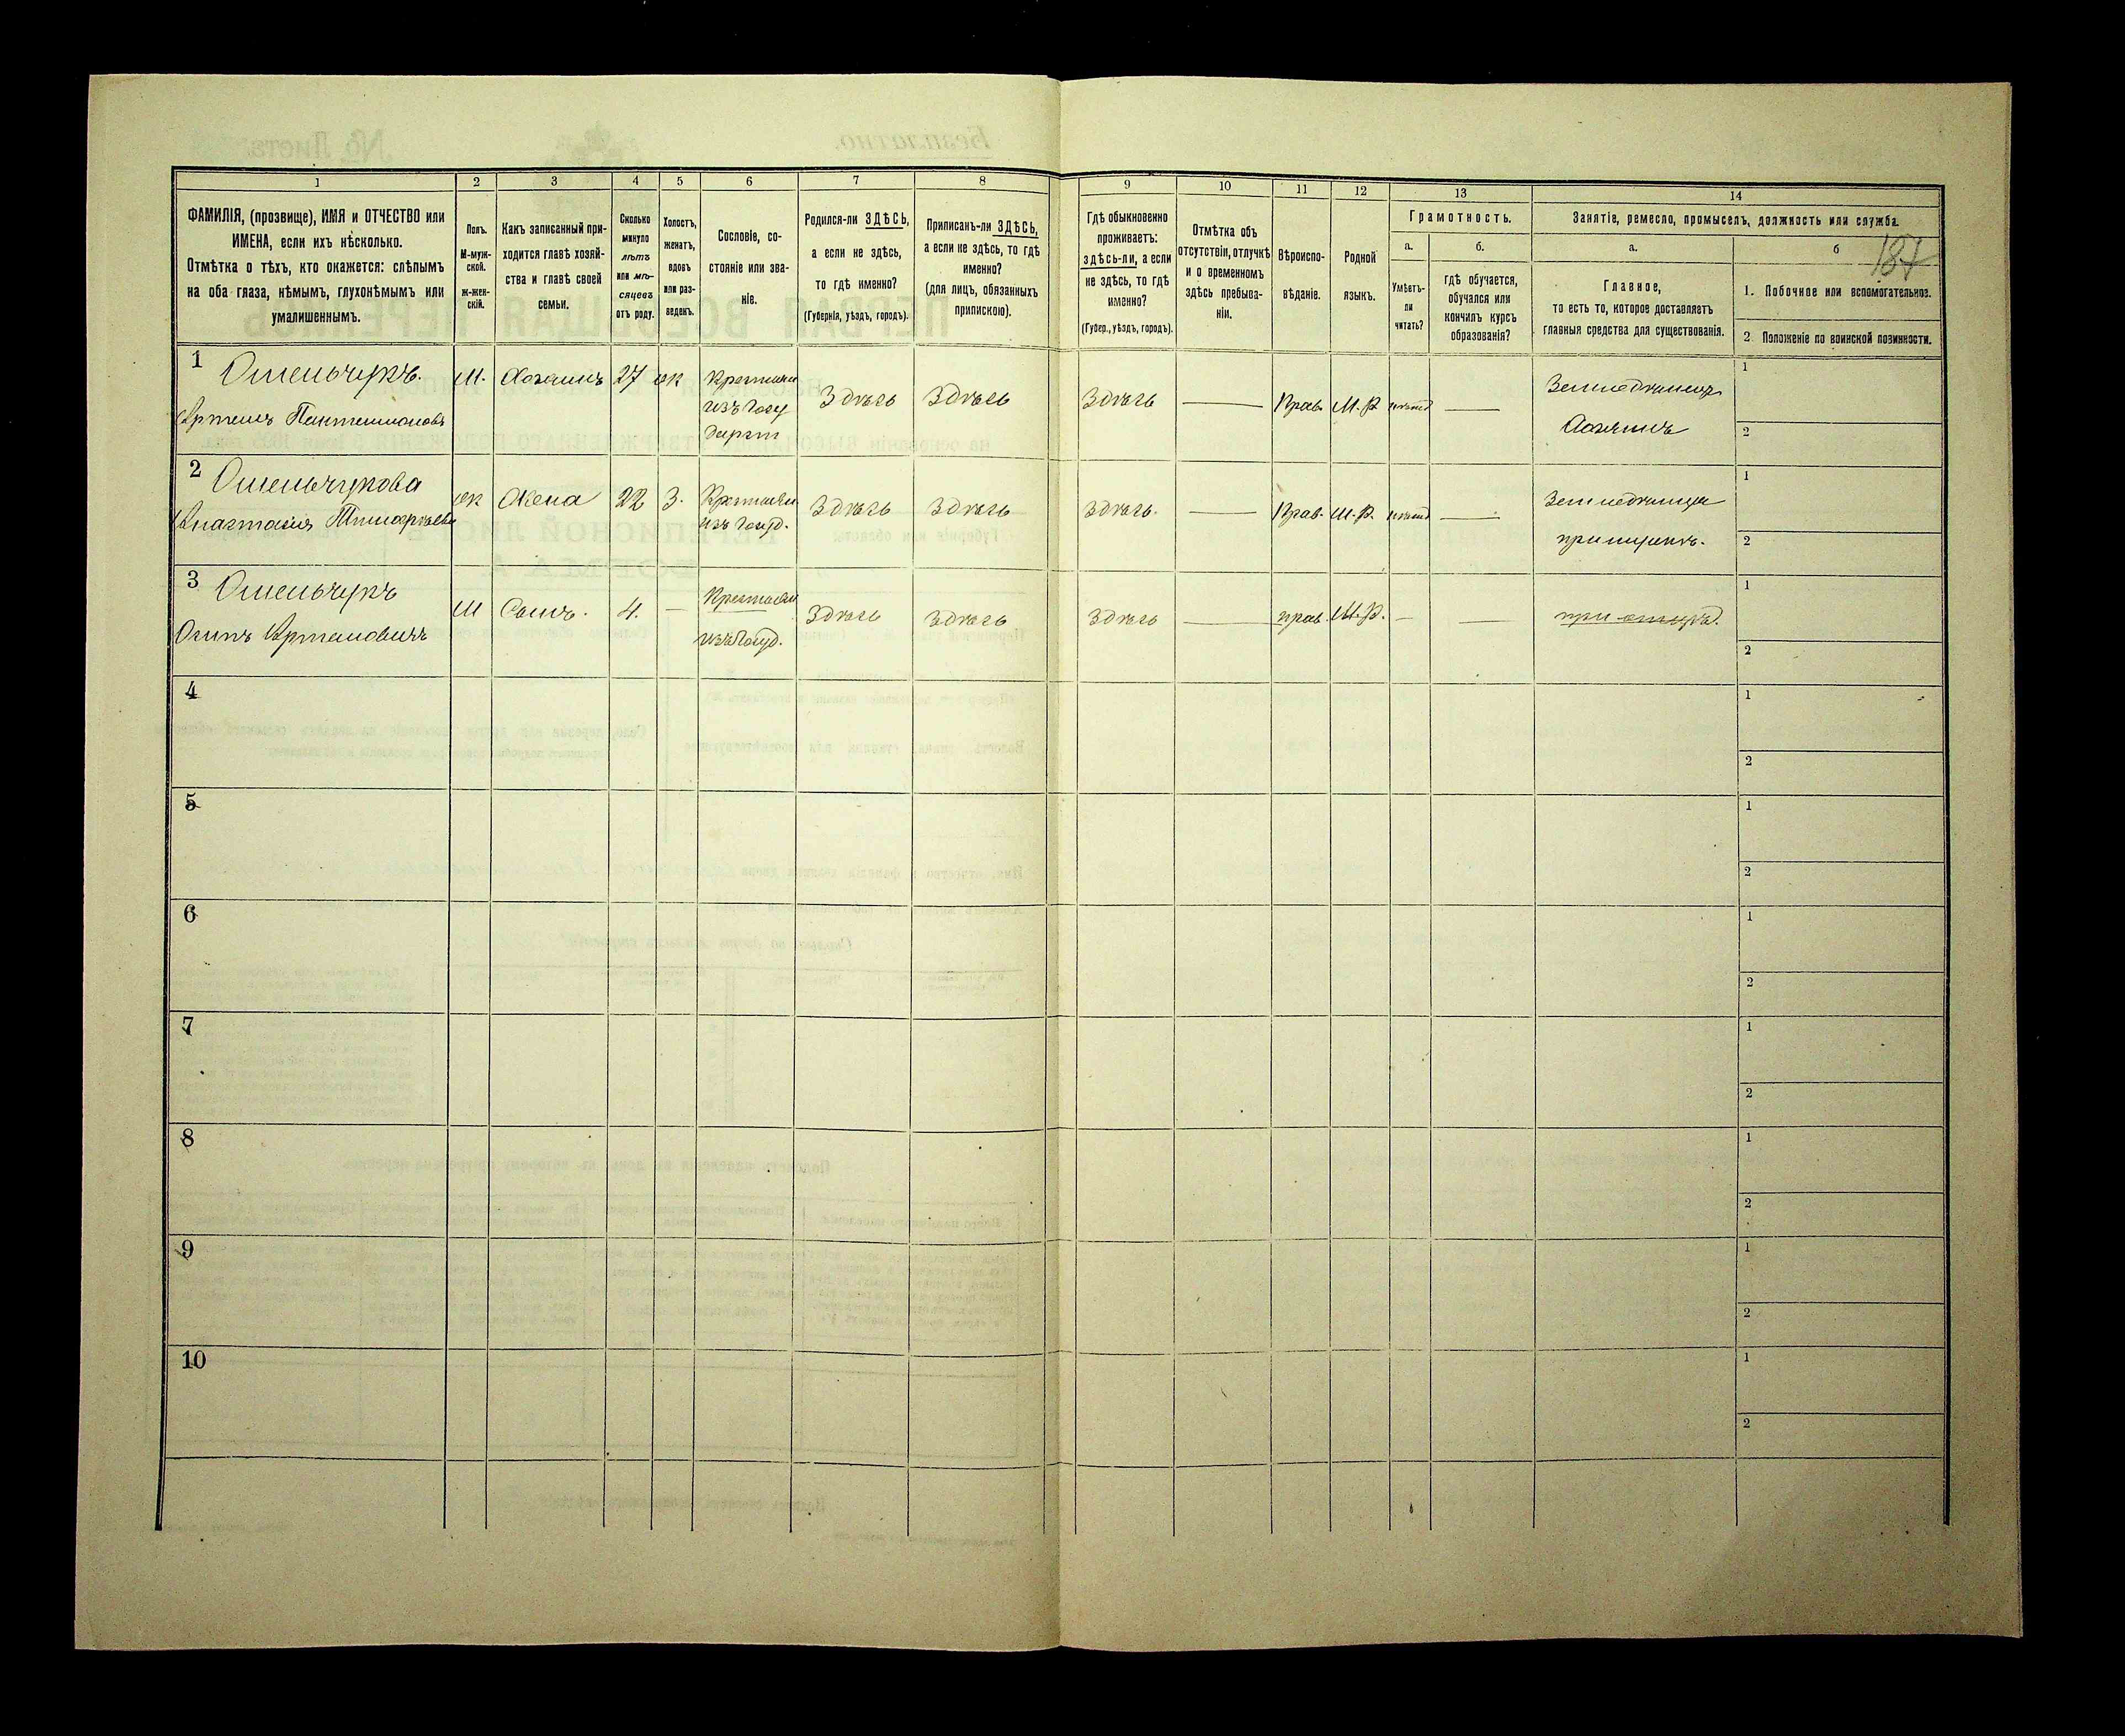 187
1 2 3 4 5 6 7 8 9 10 11 12 13 14
ФАМИЛІЯ, (прозвище), ИМЯ и ОТЧЕСТВО или
ИМЕНА, если ихъ нѣсколько.
Отмѣтка о тѣхъ, кто окажется: слѣпымъ
на оба глаза, нѣмымъ, глухонѣмымъ или
умалишеннымъ.
Полъ.
М-муж-
ской.
ж-жен-
скій.
Какъ записанный при-
ходится главѣ хозяй-
ства и главѣ своей
семьи.
Сколько
минуло
лѣтъ
или мѣ-
сяцевъ
отъ роду.
Холостъ,
женатъ,
вдовъ
или раз-
веденъ.
Сословіе, со-
стояніе или зва-
ніе.
Родился-ли ЗДѢСЬ,
а если не здѣсь,
то гдѣ именно?
(Губернія, уѣздъ, городъ).
Приписанъ-ли ЗДѢСЬ,
а если не здѣсь, то гдѣ
именно?
(для лицъ, обязанныхъ
припискою).
Гдѣ обыкновенно
проживаетъ:
здѣсь-ли, а если
не здѣсь, то гдѣ
именно?
(Губер., уѣздъ, городъ).
Отмѣтка объ
отсутствіи, отлучкѣ
и о временномъ
здѣсь пребыва-
ніи.
Вѣроиспо-
вѣданіе.
Родной
языкъ.
Грамотность.
а.
Умѣетъ-
ли
читать?
б.
гдѣ обучается,
обучался или
кончилъ курсъ
образованія?
Занятіе, ремесло, промыселъ, должность или служба.
а.
Главное,
то есть то, которое доставляетъ
главныя средства для существованія.
б
1. Побочное или вспомогательное.
2 Положеніе по воинской повинности.
1 Омельчукъ. М. Хозяинъ 27 ж Крестьян Здѣсь Здѣсь Здѣсь — Прав. М.Р. — Земледѣлецъ 1
Артемъ Пантелимоновъ изъ Госу Хозяинъ 2
дарст
2 Омельчукова ж Жена 22 З. Крестьян Здѣсь Здѣсь Здѣсь. — Прав. М.Р. — Земледѣлица 1
Анастасія Тимофѣева изъ Госуд. при мужѣ. 2
3 Омельчукъ М Сынъ. 4. — Крестьян Здѣсь Здѣсь Здѣсь — прав. М.Р. — — при отцѣ. 1
Осипъ Артемовичъ изъ Госуд. 2
4 1
2
5 1
2
6 1
2
7 1
2
8 1
2
9 1
2
10 1
2